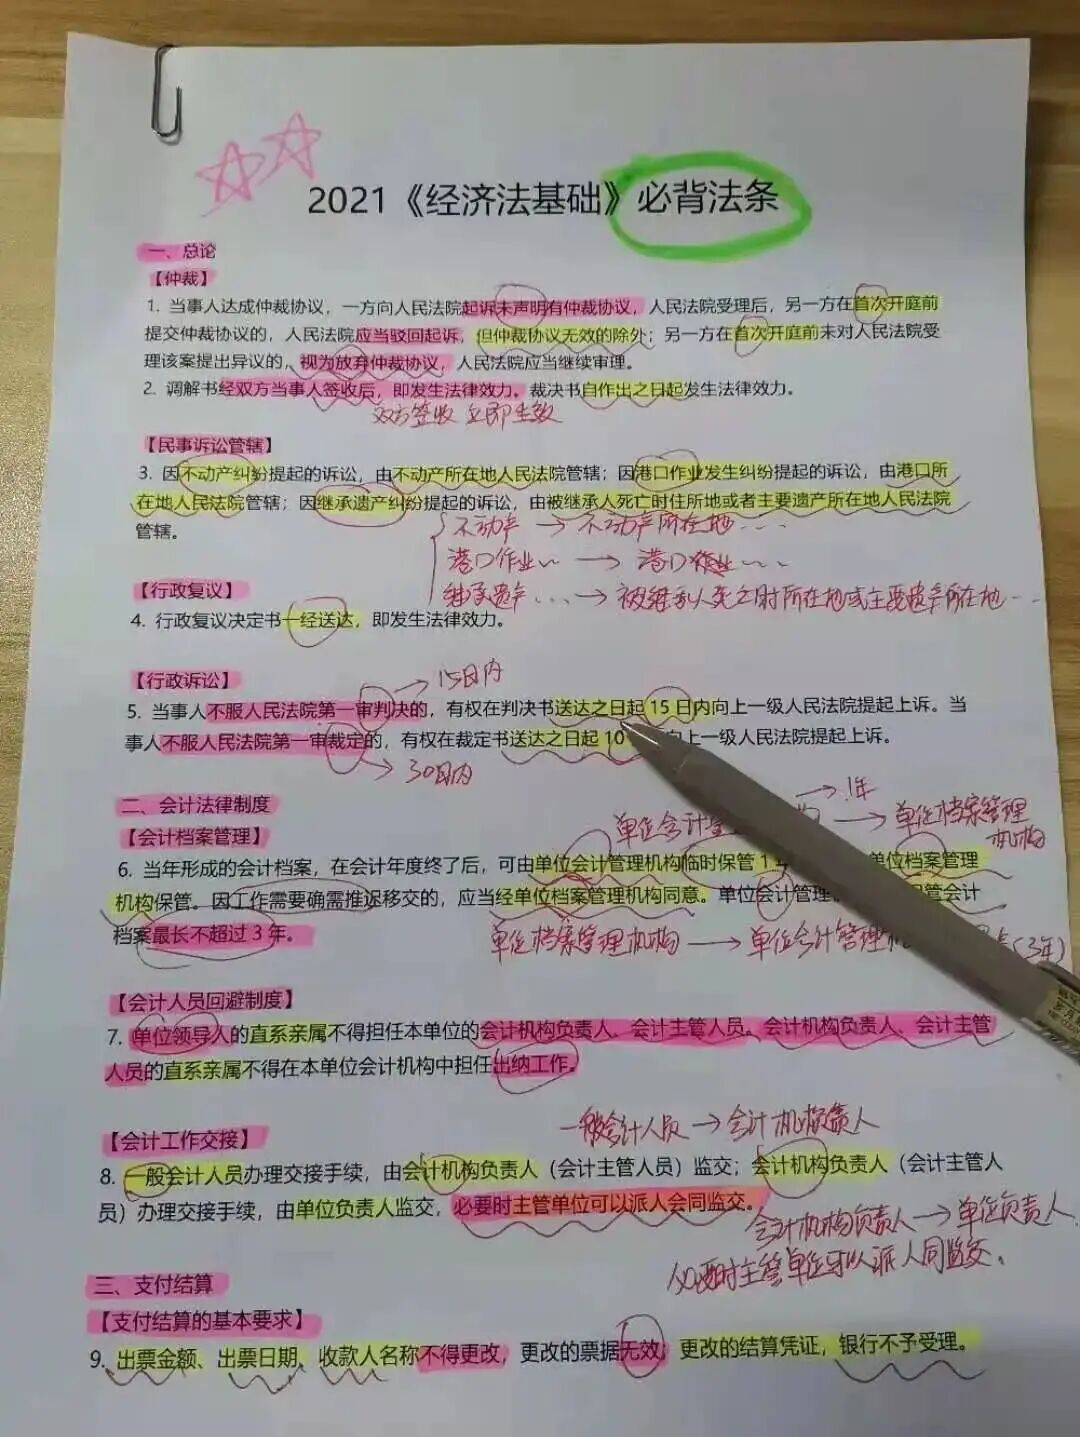 2021《经济法基础》必背法条
一、总论
【仲裁】
1. 当事人达成仲裁协议，一方向人民法院起诉未声明有仲裁协议，人民法院受理后，另一方在首次开庭前
提交仲裁协议的，人民法院应当驳回起诉，但仲裁协议无效的除外；另一方在首次开庭前未对人民法院受
理该案提出异议的，视为放弃仲裁协议，人民法院应当继续审理。
2. 调解书经双方当事人签收后，即发生法律效力。裁决书自作出之日起发生法律效力。
双方签收 立即生效
【民事诉讼管辖】
3. 因不动产纠纷提起的诉讼，由不动产所在地人民法院管辖；因港口作业发生纠纷提起的诉讼，由港口所
在地人民法院管辖；因继承遗产纠纷提起的诉讼，由被继承人死亡时住所地或者主要遗产所在地人民法院
管辖。
不动产 → 不动产所在地····
港口作业·· → 港口作业···
继承遗产··· → 被继承人死亡时所在地或主要遗产所在地···
【行政复议】
4. 行政复议决定书一经送达，即发生法律效力。
【行政诉讼】
→ 15日内
5. 当事人不服人民法院第一审判决的，有权在判决书送达之日起 15 日内向上一级人民法院提起上诉。当
事人不服人民法院第一审裁定的，有权在裁定书送达之日起 10 向上一级人民法院提起上诉。
→ 30日内
二、会计法律制度
→ 1年
【会计档案管理】
单位会计 → 单位档案管理
机构
6. 当年形成的会计档案，在会计年度终了后，可由单位会计管理机构临时保管 1 单位档案管理
机构保管。因工作需要确需推迟移交的，应当经单位档案管理机构同意。单位会计管理 保管会计
档案最长不超过 3 年。
单位档案管理机构 → 单位会计管理机 (3年)
【会计人员回避制度】
7. 单位领导人的直系亲属不得担任本单位的会计机构负责人、会计主管人员。会计机构负责人、会计主管
人员的直系亲属不得在本单位会计机构中担任出纳工作。
一般会计人员 → 会计机构负责人
【会计工作交接】
8. 一般会计人员办理交接手续，由会计机构负责人（会计主管人员）监交；会计机构负责人（会计主管人
员）办理交接手续，由单位负责人监交，必要时主管单位可以派人会同监交。
会计机构负责人 → 单位负责人
必要时主管单位可以派人同监交。
三、支付结算
【支付结算的基本要求】
9. 出票金额、出票日期、收款人名称不得更改，更改的票据无效；更改的结算凭证，银行不予受理。